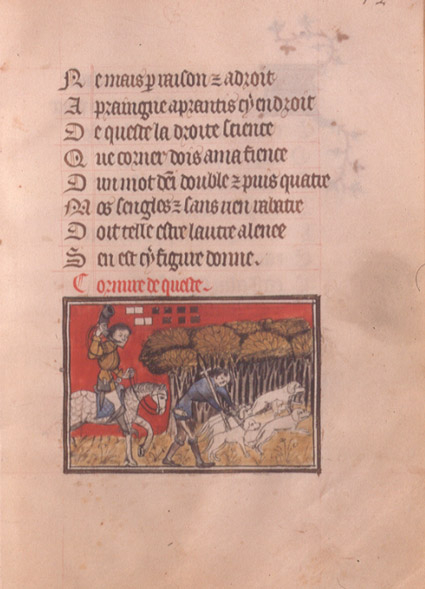 Ne mais p raison z adroit
Apraingne aprantis cy endroit
De queste la droite science
Que corner dois a ma fience
Dun mot demi double z puis quatre
Mos sengles z sans rien rabatre
Doit telle estre lautre alence
Sen est cy figure donne.
Cornure de queste.